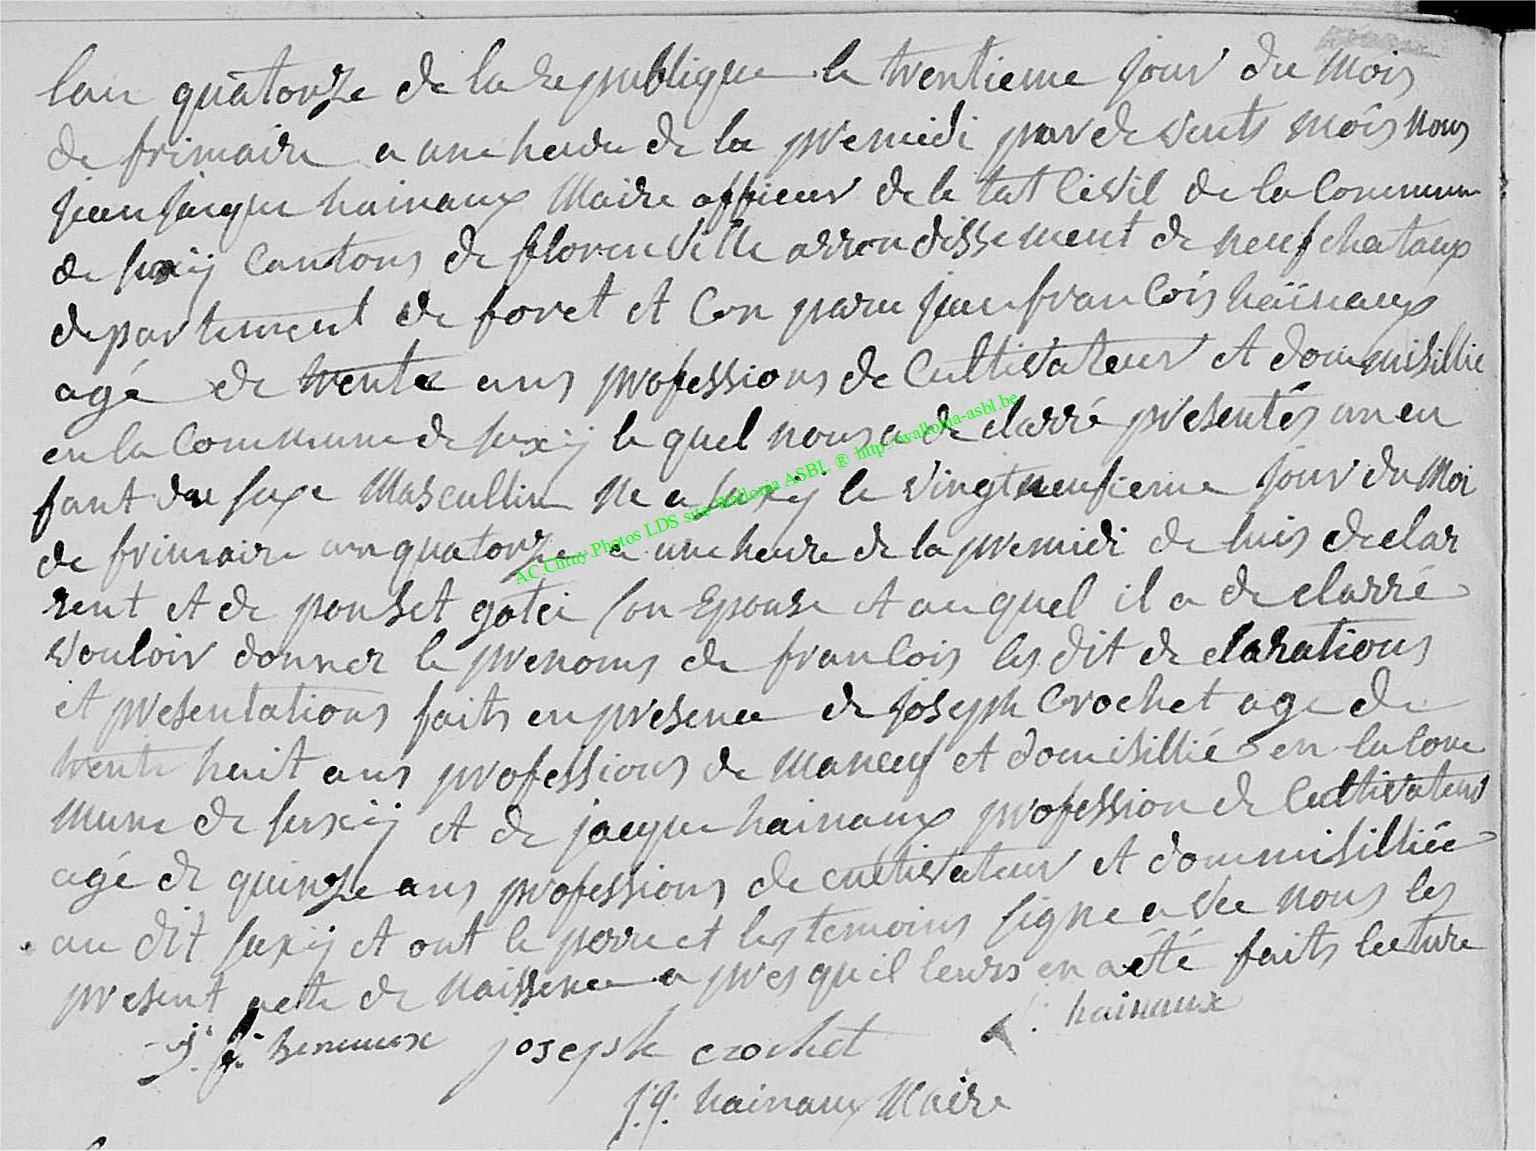 lan quatorze de la republique le trentieme jour du mois
de frimaire a une heure de la premidi par devents mois nous
jean jacque hainaux Maire officier de le tat Civil de la Commune
de suxÿ Cantons de florenville arrondissement de neufchataux
departement de foret et Con paru jean francois hainaux
agé de trente ans professions de Cultivateur et dommisillie
en la Commune de suxÿ le quel nous a de clarré presentés un en
fant du sexe Mascullin Ne a suxÿ le vingt neufieme jour du Moi
de frimaire an quatorze a une heure de la premidi de luis declar
rent et de pouset gatei son Epouse et au quel il a de clarré
vouloir donner le prenoms de francois les dit de clarations
et presentations faits en presence de joseph Crochet age de
trente huit ans professions de maneuf et domisillié en la Com
mune de suxÿ et de jacque hainaux profession de Cultivateur
agé de quinze ans professions de cultivateur et dommisilliée
au dit suxÿ et ont le perre et les temoins signe avec nous les
present acte de naissence a pres quil leurs en a été faits lecture
j. f. henaux joseph crochet hainaux
j. j. hainaux Maire
AC Chiny Photos LDS site Wallonia ASBL ® http://wallonia-asbl.be